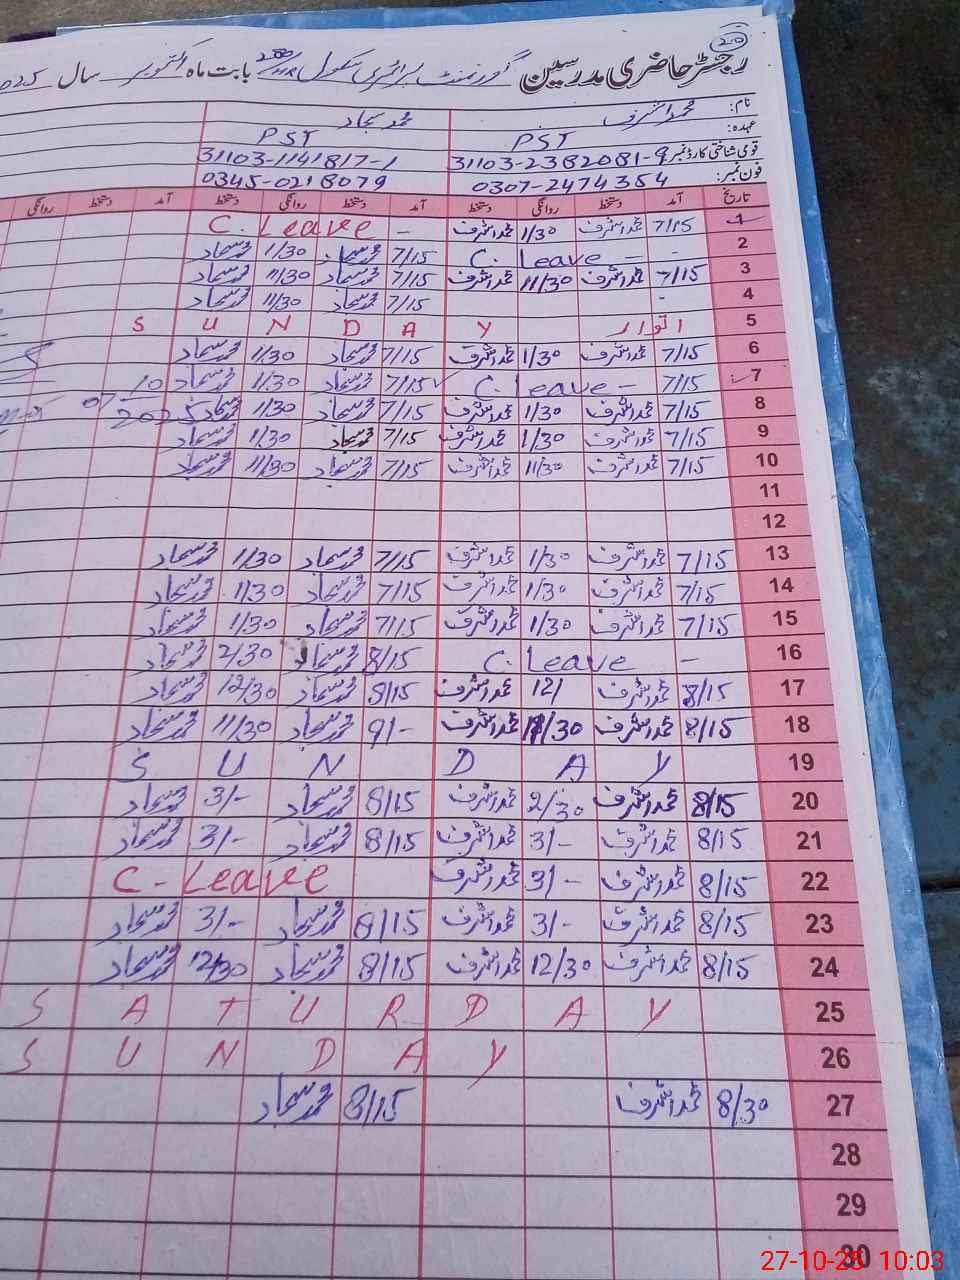 20
رجسٹر حاضری مدرسین گورنمنٹ پرائمری سکول بابت ماہ اکتوبر سال 2025
نام: محمد اشرف محمد سجاد
عہدہ: PST PST
قومی شناختی کارڈ نمبر 31103-2382081-9 31103-1141817-1
فون نمبر: 0307-2474354 0345-0218079
تاریخ آمد دستخط روانگی دستخط آمد دستخط روانگی دستخط آمد دستخط روانگی
1 7/15 محمد اشرف 1/30 محمد اشرف - C. Leave
2 - - C. Leave 7/15 محمد سجاد 1/30 محمد سجاد
3 7/15 محمد اشرف 11/30 محمد اشرف 7/15 محمد سجاد 11/30 محمد سجاد
4 - 7/15 محمد سجاد 11/30 محمد سجاد
5 اتوار S U N D A Y
6 7/15 محمد اشرف 1/30 محمد اشرف 7/15 محمد سجاد 1/30 محمد سجاد
7 7/15 - C. Leave 7/15 محمد سجاد 1/30 محمد سجاد 10
8 7/15 محمد اشرف 1/30 محمد اشرف 7/15 محمد سجاد 1/30 محمد سجاد 07 2025
9 7/15 محمد اشرف 1/30 محمد اشرف 7/15 محمد سجاد 1/30 محمد سجاد
10 7/15 محمد اشرف 11/30 محمد اشرف 7/15 محمد سجاد 11/30 محمد سجاد
11
12
13 7/15 محمد اشرف 1/30 محمد اشرف 7/15 محمد سجاد 1/30 محمد سجاد
14 7/15 محمد اشرف 1/30 محمد اشرف 7/15 محمد سجاد 1/30 محمد سجاد
15 7/15 محمد اشرف 1/30 محمد اشرف 7/15 محمد سجاد 1/30 محمد سجاد
16 - C. Leave 8/15 محمد سجاد 2/30 محمد سجاد
17 8/15 محمد اشرف 12/ محمد اشرف 8/15 محمد سجاد 12/30 محمد سجاد
18 8/15 محمد اشرف 11/30 محمد اشرف 9/- محمد سجاد 11/30 محمد سجاد
19 S U N D A Y
20 8/15 محمد اشرف 2/30 محمد اشرف 8/15 محمد سجاد 3/- محمد سجاد
21 8/15 محمد اشرف 3/- محمد اشرف 8/15 محمد سجاد 3/- محمد سجاد
22 8/15 محمد اشرف 3/- محمد اشرف C - Leave
23 8/15 محمد اشرف 3/- محمد اشرف 8/15 محمد سجاد 3/- محمد سجاد
24 8/15 محمد اشرف 12/30 محمد اشرف 8/15 محمد سجاد 12/30 محمد سجاد
25 S A T U R D A Y
26 S U N D A Y
27 8/30 محمد اشرف 8/15 محمد سجاد
28
29
30
27-10-25 10:03